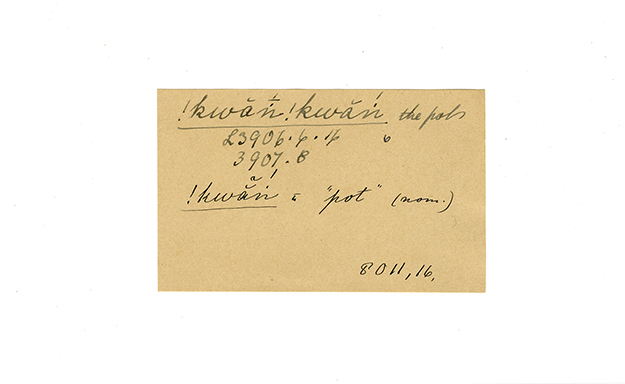 !kwăṅ!kwăń the pots
L3906.4.4
3907.8
!kwăń = "pot" (nom.)
8011,16.